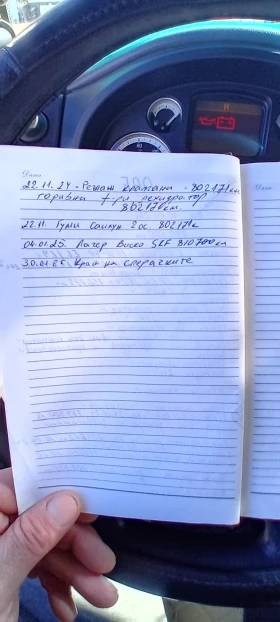 Дата:
22.11.24 - Ремък кромани - 802171км
горивни ф-ри дехидратор
802171км.
22.11. Гуми Саилун 2ос. 802171к
04.01.25. Лагер Виско SKF 810700км
30.01.25 Кран на спирачките
Дата:
N